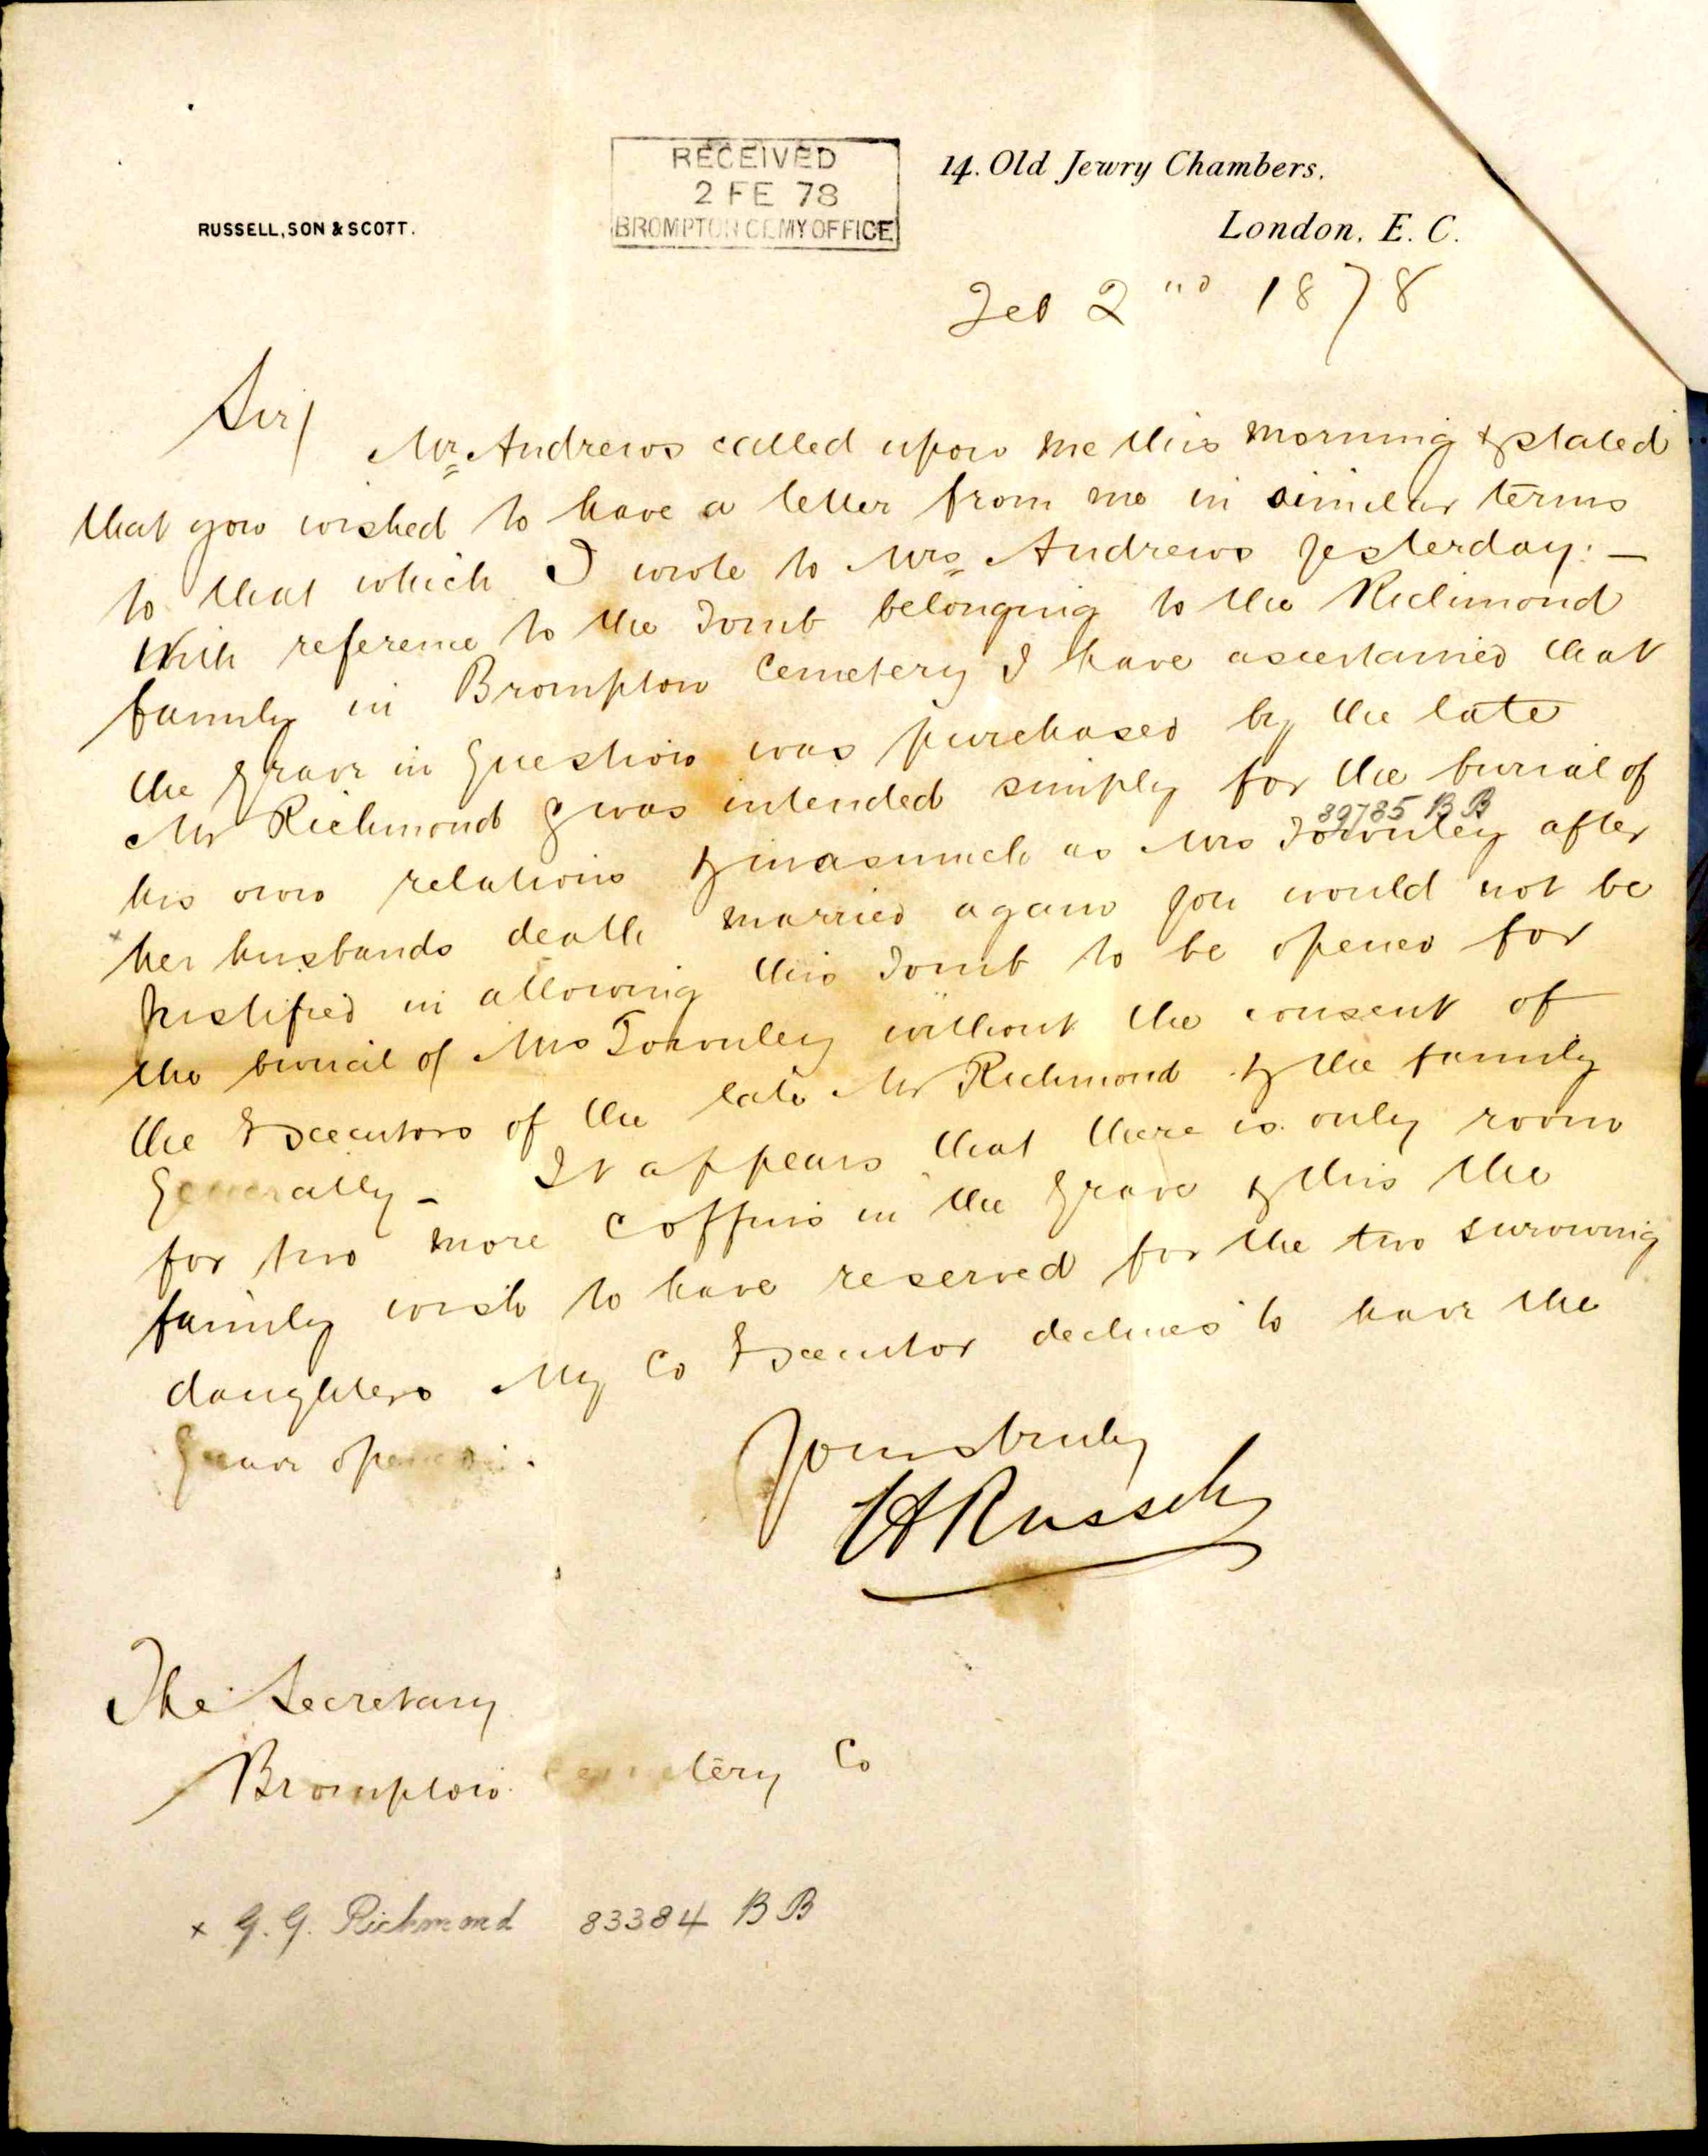 RECEIVED
2 FE 78
BROMPTON CEMY OFFICE
14. Old Jewry Chambers.
RUSSELL, SON & SCOTT.
London. E. C.
Feb 2nd 1878
Sir/
Mr Andrews called upon me this morning & stated
that you wished to have a letter from me in similar terms
to that which I wrote to Mrs Andrews yesterday: —
With reference to the Tomb belonging to the Richmond
family in Brompton Cemetery I have ascertained that
the grave in question was purchased by the late
Mr Richmond & was intended simply for the burial of
89785 BB
his own relations & inasmuch as Mrs Townley after
x her husbands death married again you would not be
justified in allowing this Tomb to be opened for
the burial of Mrs Townley without the consent of
the Executors of the late Mr Richmond & the family
generally – It appears that there is only room
for two more coffins in the grave & this the
family wish to have reserved for the two surviving
daughters My Co Executor declines to have the
grave opened.
Yours truly
H Russell
The Secretary
Brompton Cemetery Co
x G. G. Richmond 83384 BB